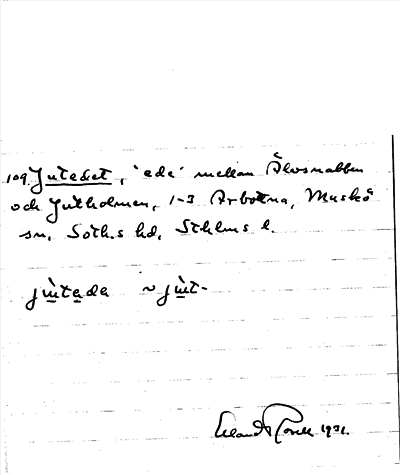 109. Jutedet, 'ede' mellan Älvsnabben
och Jutholmen, 1-3 Arbottna, Muskö
sn, Soth.s hd, Sthlms l.
jùteda ~ jùt-
1931.